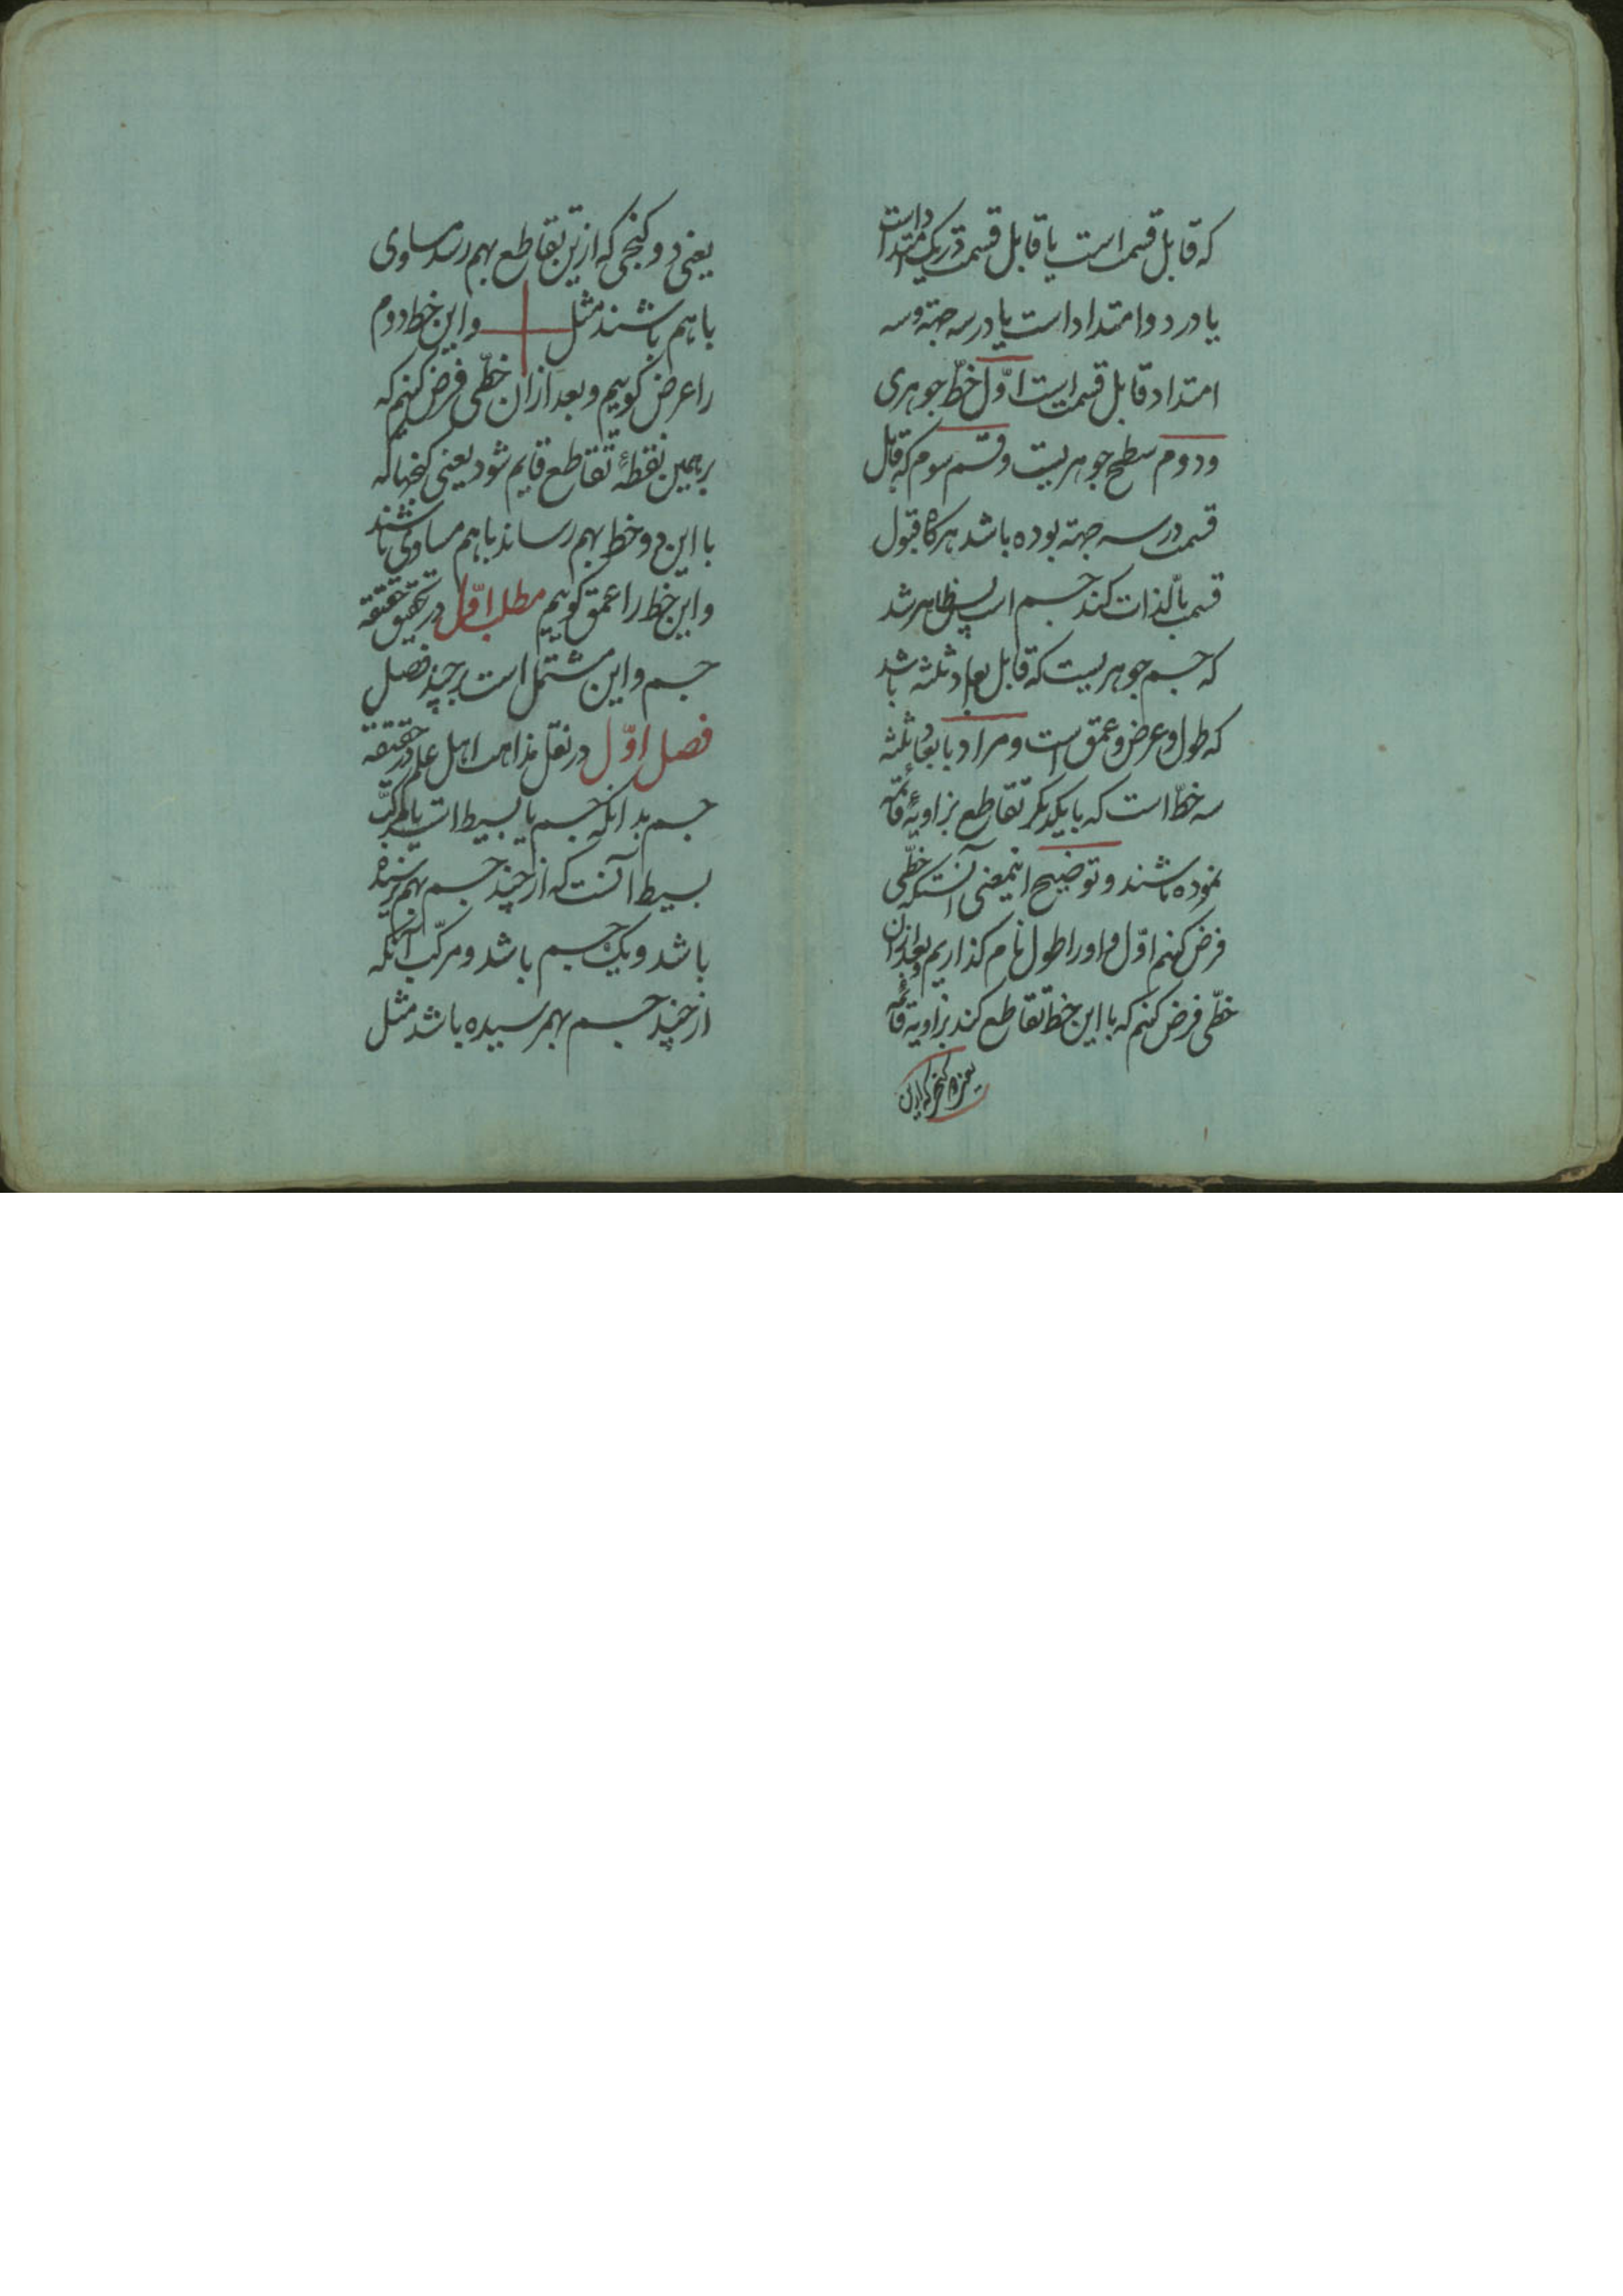 که قابل قسمت است یا قابل قسمت در یک امتداد است
یا در دو امتداد است یا در سه جهته و سه
امتداد قابل قسمت است اوّل خطّ جوهری
و دوم سطح جوهریست و قسم سوم که قابل
قسمت در سه جهته بوده باشد هرکاه قبول
قسمت بالذات کند جسم است پس ظاهر شد
که جسم جوهریست که قابل ابعاد ثلثه باشد
که طول و عرض و عمق است و مراد بابعاد ثلثه
سه خطّ است که با یکدیکر تقاطع بزاویهٔ قائمه
نموده باشند و توضیح اینمعنی آنستکه خطّی
فرض کنیم اوّل و او را طول نام کذاریم و بعد از ان
خطّی فرض کنیم که با این خط تقاطع کند بزاویهٔ قائمه
یعنی دو کنجی که ازین
یعنی دو کنجی که ازین تقاطع بهم رسد مساوی
با هم باشند مثل واین خط دوم
را عرض کوییم و بعد از ان خطّی فرض کنیم که
بر همین نقطهٔ تقاطع قایم شود یعنی کنجها که
با این دو خط بهم رساند با هم مساوی باشند
و این خط را عمق کوییم مطلب اوّل در تحقیق حقیقة
جسم و این مشتمل است بر چند فصل
فصل اوّل در نقل مذاهب اهل علم در حقیقة
جسم بدانکه جسم یا بسیط است یا مرکّب
بسیط آنست که از چند جسم بهم نرسیده
باشد و یک جسم باشد و مرکّب آنکه
از چند جسم بهم رسیده باشد مثل